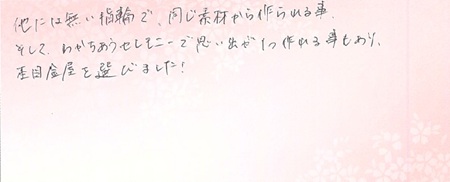 他には無い指輪で、同じ素材から作られる事、
そして、わかちあうセレモニーで思い出が1つ作れる事もあり、
杢目金屋を選びました!